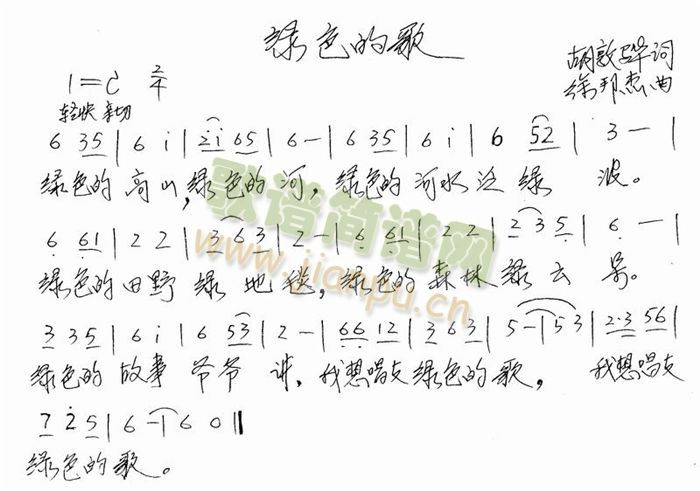 绿色的歌
胡敦骅词
1=C 2/4
徐邦杰曲
轻快 亲切
6 35 | 6 i | 2i 65 | 6 - | 6 35 | 6 i | 6 52 | 3 - |
绿色的高山,绿色的河,绿色的河水泛绿波。
6 61 | 2 2 | 3 6 3 | 2 - | 6 61 | 2 2 | 2 3 5 | 6 - |
绿色的田野绿地毯,绿色的森林绿云朵。
3 35 | 6 i | 6 53 | 2 - | 66 12 | 3 6 3 | 5 - | 5 3 | 2·3 56 |
绿色的故事爷爷讲,我想唱支绿色的歌,我想唱支
7 2 5 | 6 - | 6 0 ‖
绿色的歌。
歌谱简谱网
www.jianpu.cn